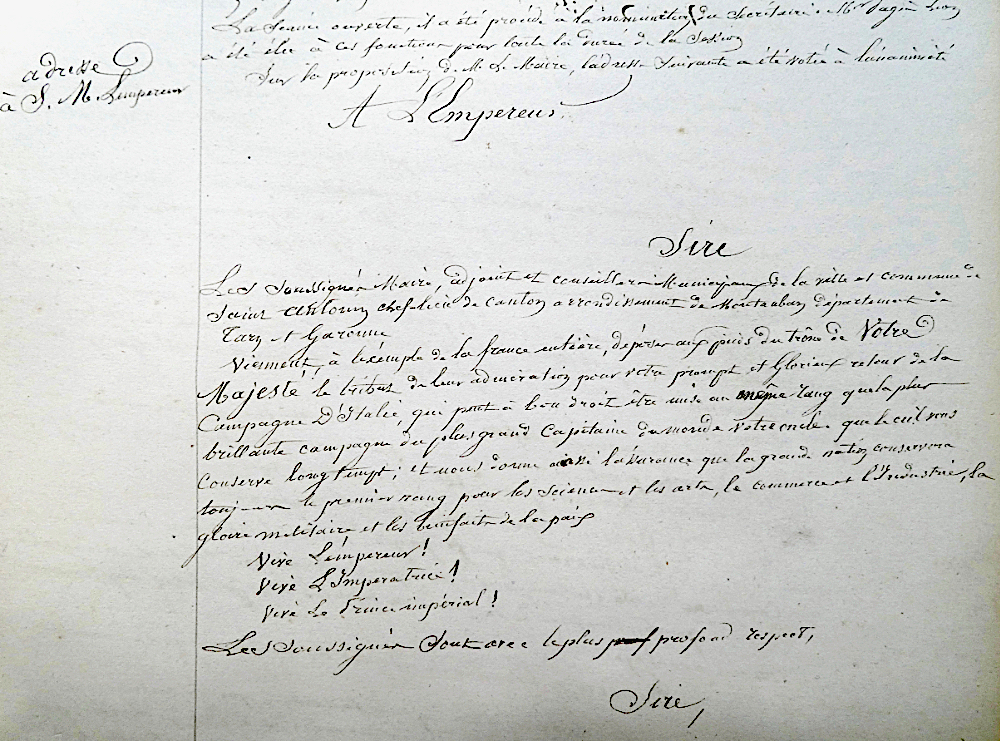 La Séance ouverte, il a été procédé à la nomination du Secrétaire. Mr
a été élu à ces fonctions pour toute la durée de la Session
Sur la proposition de M. Le Maire, l'adresse Suivante a été votée à l'unanimité
adresse
à S. M. L'empereur
A L'Empereur.
Sire
Les Soussignés Maire, adjoint et conseillers Municipaux de la ville et commune de
Saint Antonin chef-lieu de Canton arrondissement de Montauban département de
Tarn et Garonne
Viennent, à l'exemple de la france entière, déposer aux pieds du trône de Votre
Majesté le tribut de leur admiration pour votre prompt et Glorieux retour de la
Campagne D'Italie, qui peut à bon droit être mise au même rang que la plus
brillante campagne du plus grand Capitaine du monde votre oncle que le ciel vous
Conserve longtempt ; et nous donne ainsi l'assurance que la grande nation conservera
toujours le premier rang pour les Sciences et les arts, le commerce et l'Industrie, la
gloire militaire et les bienfaits de la paix
Vive L'émpereur !
Vive L'Imperatrice !
Vive Le Prince impérial !
Les Soussignés Sont avec le plus profond respect,
Sire,